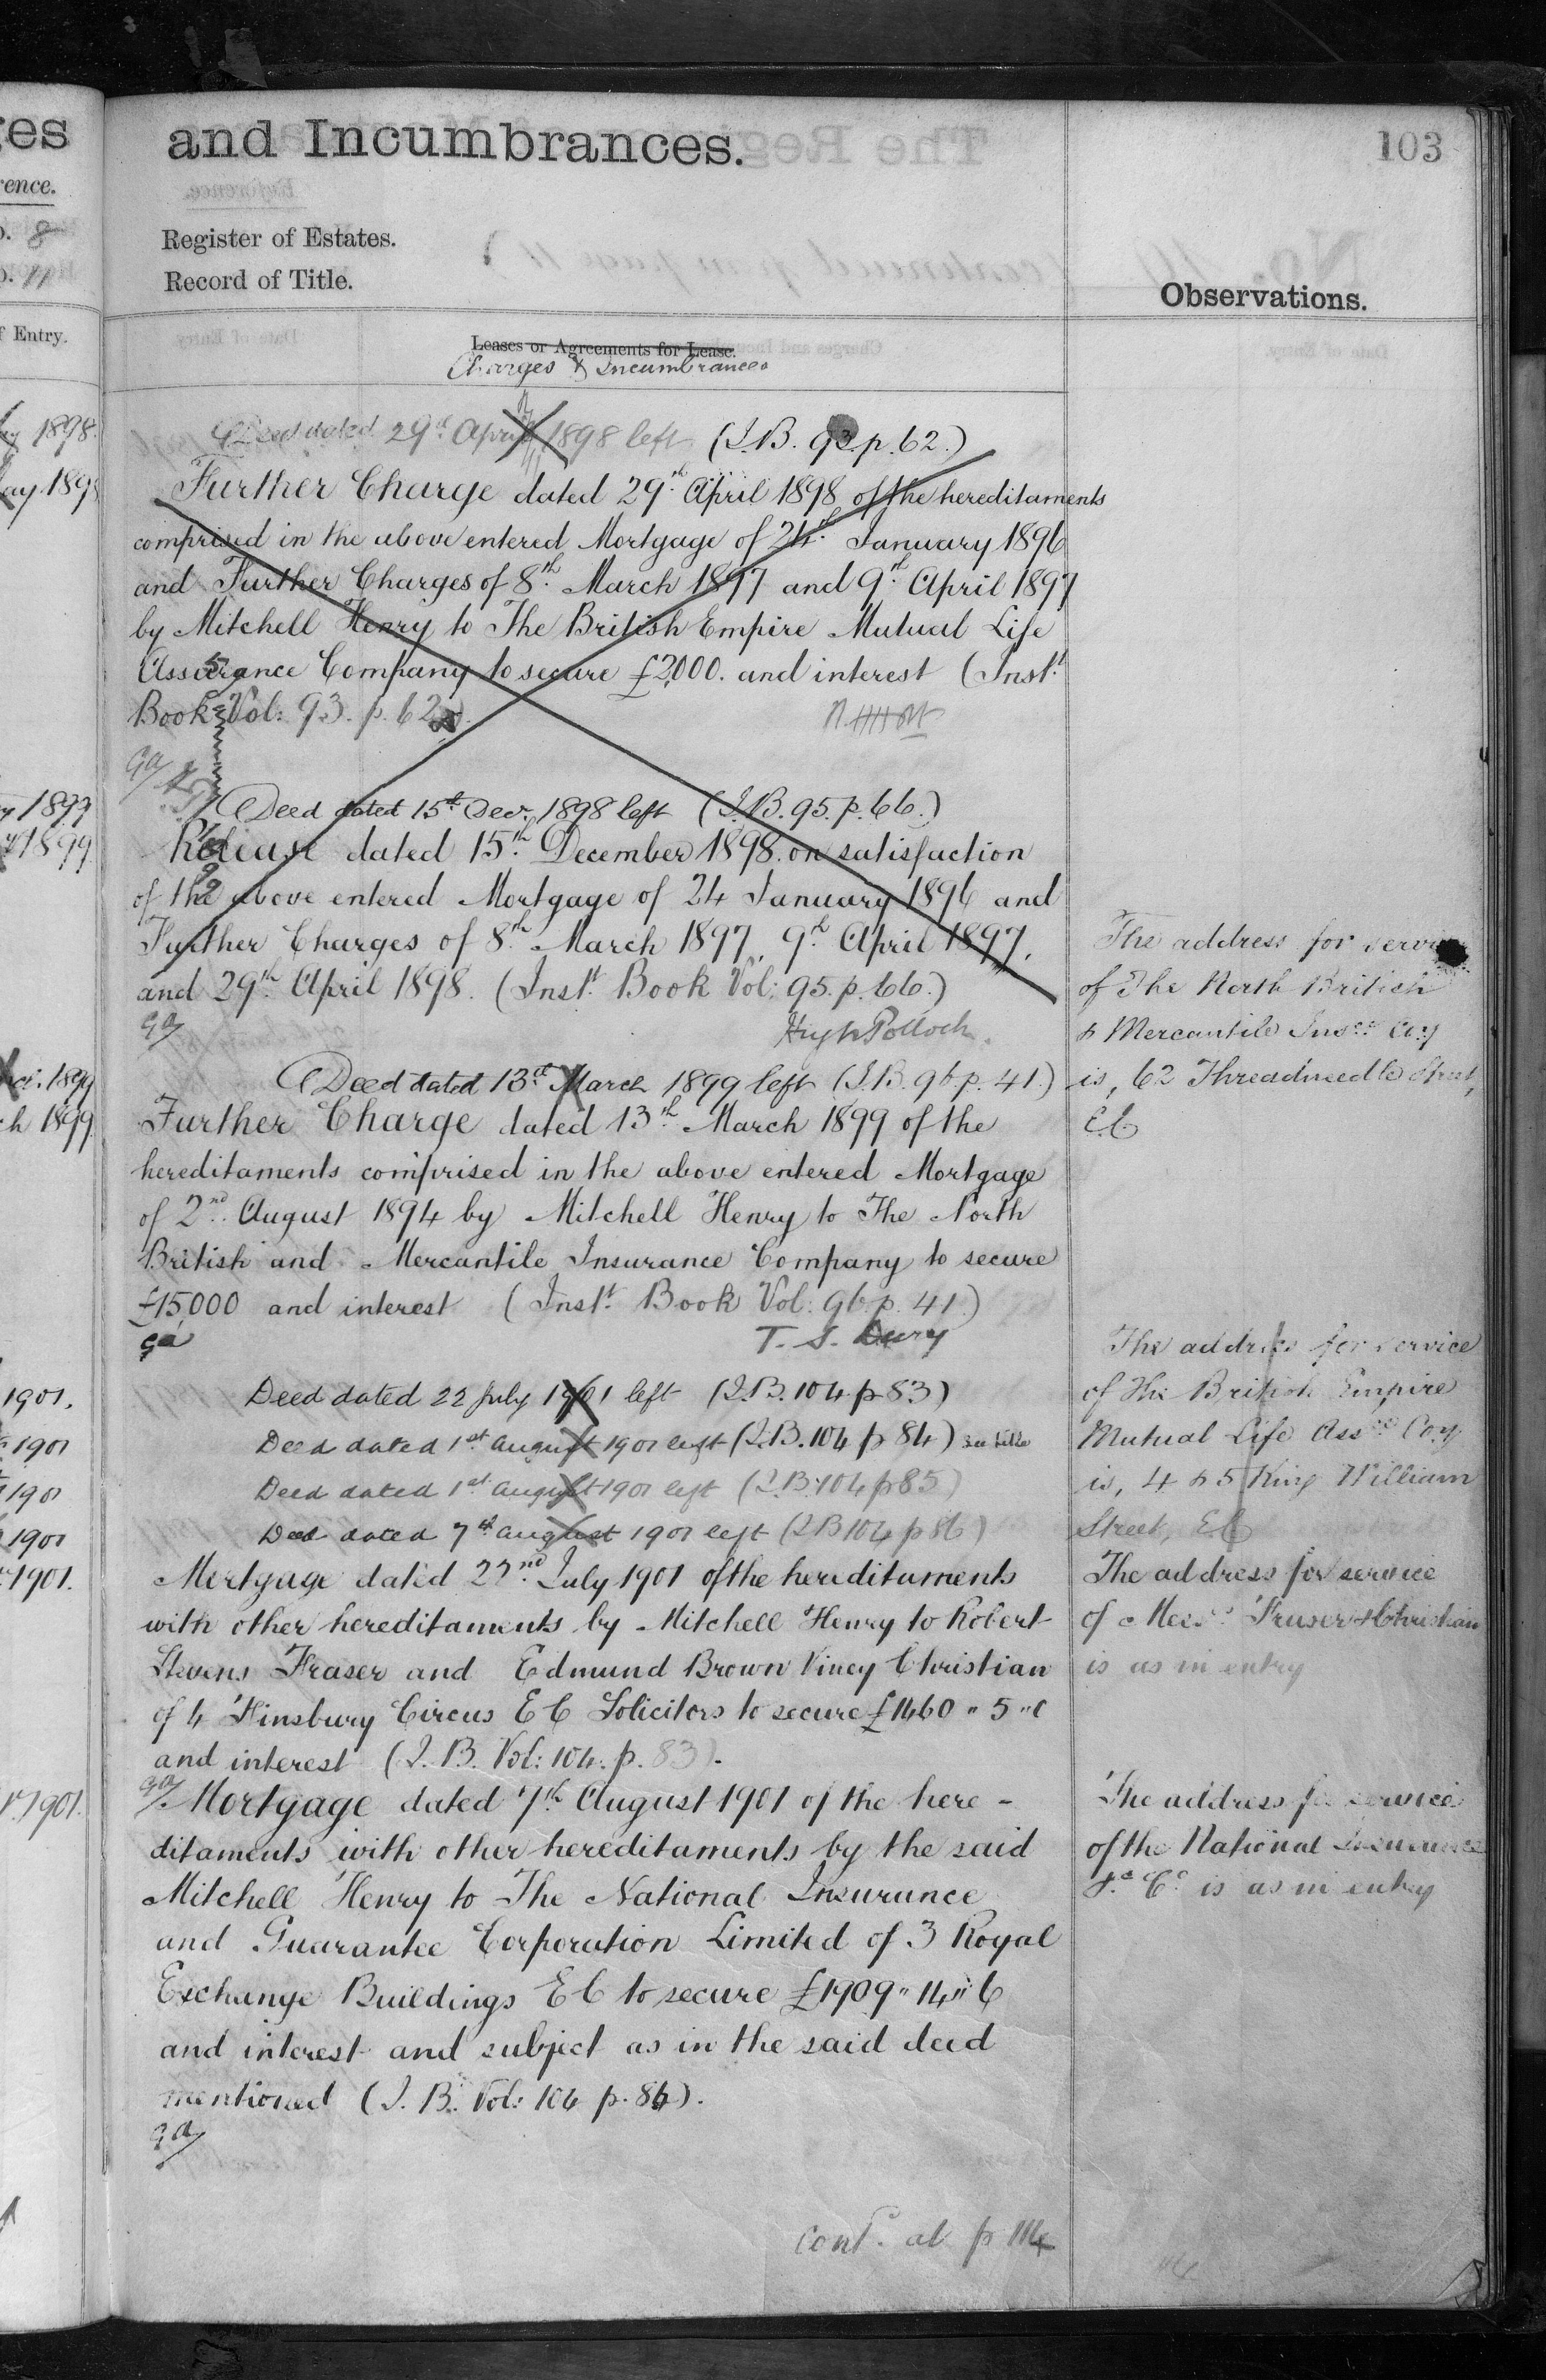 ges
and Incumbrances.
103
rence.
Register of Estates.
Record of Title.
Observations.
8
11
f Entry.
Leases or Agreements for Lease.
Charges & Incumbrances
1898.
Deed dated 29th April 1898 left (I.B. 93. p. 62.)
ay 1898
Further Charge dated 29th April 1898 of the hereditaments
comprised in the above entered Mortgage of 24th January 1896
and Further Charges of 8th March 1897 and 9th April 1897
by Mitchell Henry to The British Empire Mutual Life
Assurance Company to secure £2,000. and interest (Inst.
Book Vol: 93. p. 62.)
ga
1899
Deed dated 15th Decr. 1898 left (I.B. 95. p. 66.)
1899
Release dated 15th December 1898. on satisfaction
of the above entered Mortgage of 24 January 1896 and
Further Charges of 8th March 1897, 9th April 1897,
and 29th April 1898. (Inst. Book Vol: 95. p. 66.)
ga
Hugh Pollock.
1899
Deed dated 13th March 1899 left (I.B. 96. p. 41.)
ch 1899
Further Charge dated 13th March 1899 of the
hereditaments comprised in the above entered Mortgage
of 2nd August 1894 by Mitchell Henry to The North
British and Mercantile Insurance Company to secure
£15,000 and interest (Inst. Book Vol: 96. p. 41.)
ga
T. S. Dury
1901.
Deed dated 22 July 1901 left (I.B. 104 p 83)
1901
Deed dated 1st August 1901 left (I.B. 104 p 84) see title
1901
Deed dated 1st August 1901 left (I.B. 104 p 85)
1901
Deed dated 7th August 1901 left (I B 104 p 86)
1901.
Mortgage dated 22nd July 1901 of the hereditaments
with other hereditaments by Mitchell Henry to Robert
Stevens Fraser and Edmund Brown Viney Christian
of 4 Finsbury Circus E C Solicitors to secure £1460 " 5 " 0
and interest (I. B. Vol: 104. p. 83).
1901.
ga
Mortgage dated 7th August 1901 of the here-
ditaments with other hereditaments by the said
Mitchell Henry to The National Insurance
and Guarantee Corporation Limited of 3 Royal
Exchange Buildings E C to secure £1909 " 14 " 6
and interest and subject as in the said deed
mentioned (I. B. Vol: 104 p. 86).
ga
cont. at p 114
The address for service
of The North British
& Mercantile Insce Coy
is, 62 Threadneedle Street,
E.C
The address for service
of The British Empire
Mutual Life Assce Coy
is, 4 & 5 King William
Street, E C
The address for service
of Messrs Fraser & Christian
is as in entry
The address for service
of the National Insurance
&c Co. is as in entry